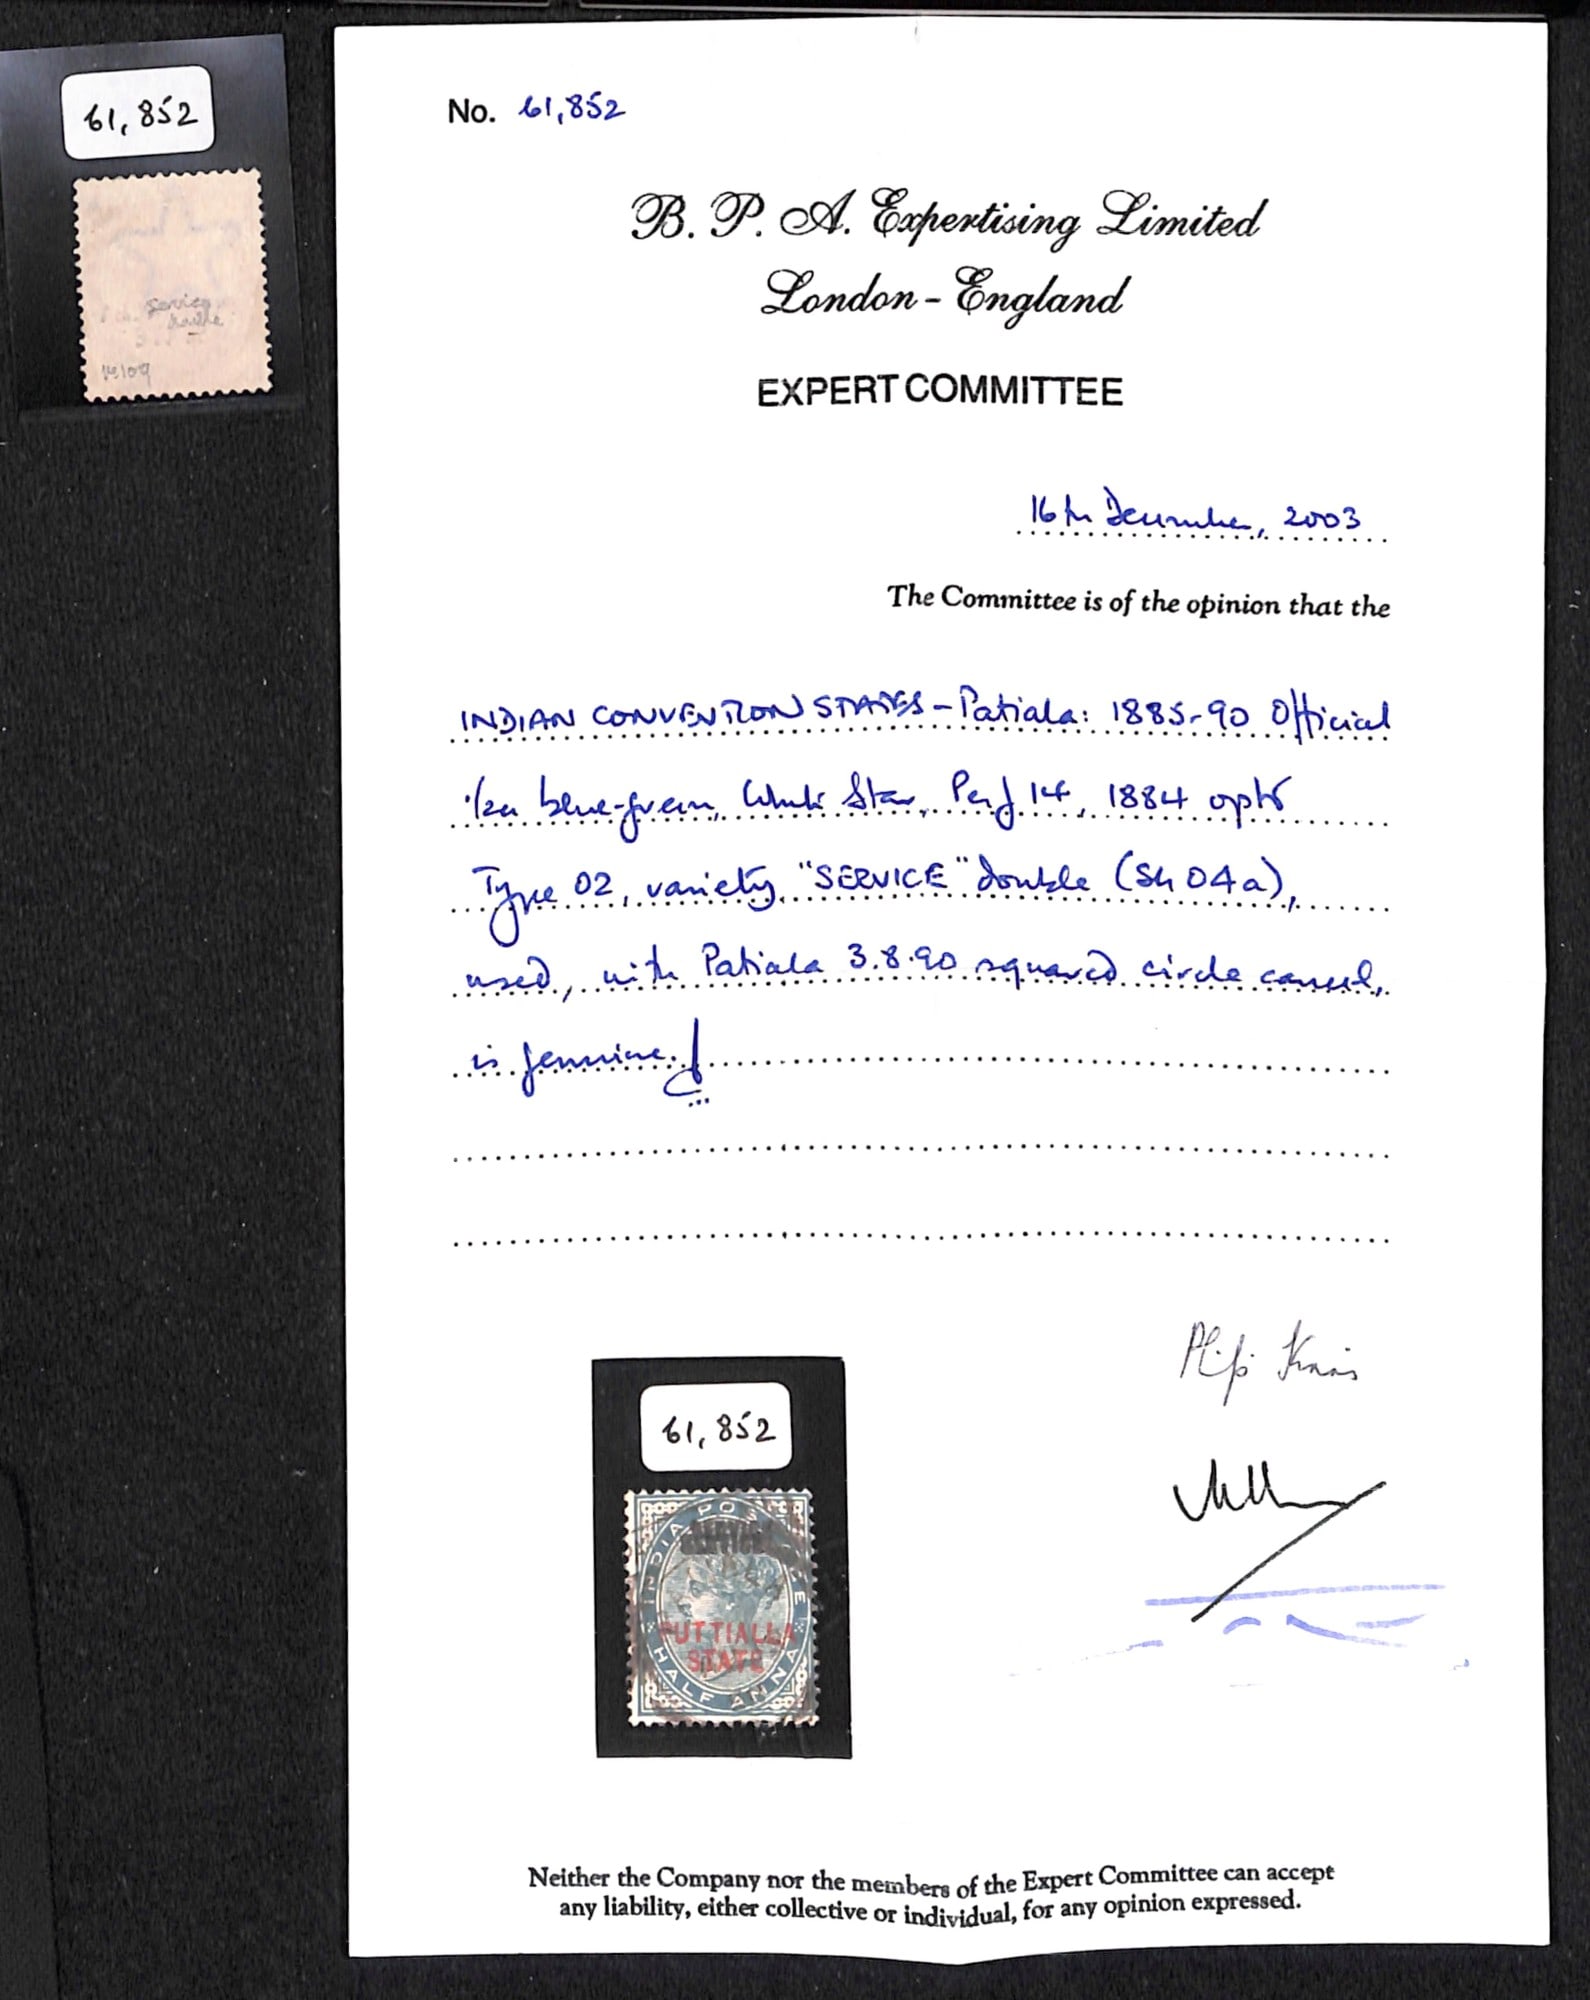 61,852
service
double
No. 61,852
B. P. A. Expertising Limited
London - England
EXPERT COMMITTEE
16th December, 2003
The Committee is of the opinion that the
INDIAN CONVENTION STATES - Patiala: 1885-90 Official
1/2a blue-green, Wmk Star, Perf 14, 1884 opts
Type O2, variety "SERVICE" double (SG O4a),
used, with Patiala 3.8.90 squared circle cancel,
is genuine.
61,852
INDIA POSTAGE
SERVICE
PUTTIALLA
STATE
HALF ANNA
Neither the Company nor the members of the Expert Committee can accept
any liability, either collective or individual, for any opinion expressed.